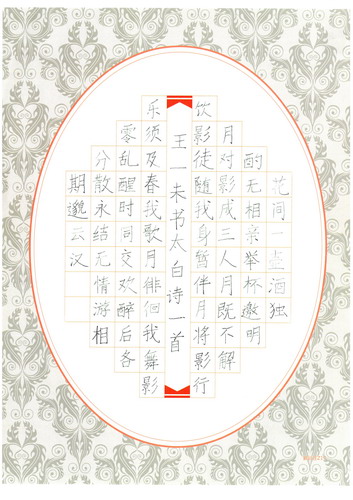 花间一壶酒独
酌无相亲举杯邀明
月对影成三人月既不解
饮影徒随我身暂伴月将影行
王一未书太白诗一首
乐须及春我歌月徘徊我舞影
零乱醒时同交欢醉后各
分散永结无情游相
期邈云汉